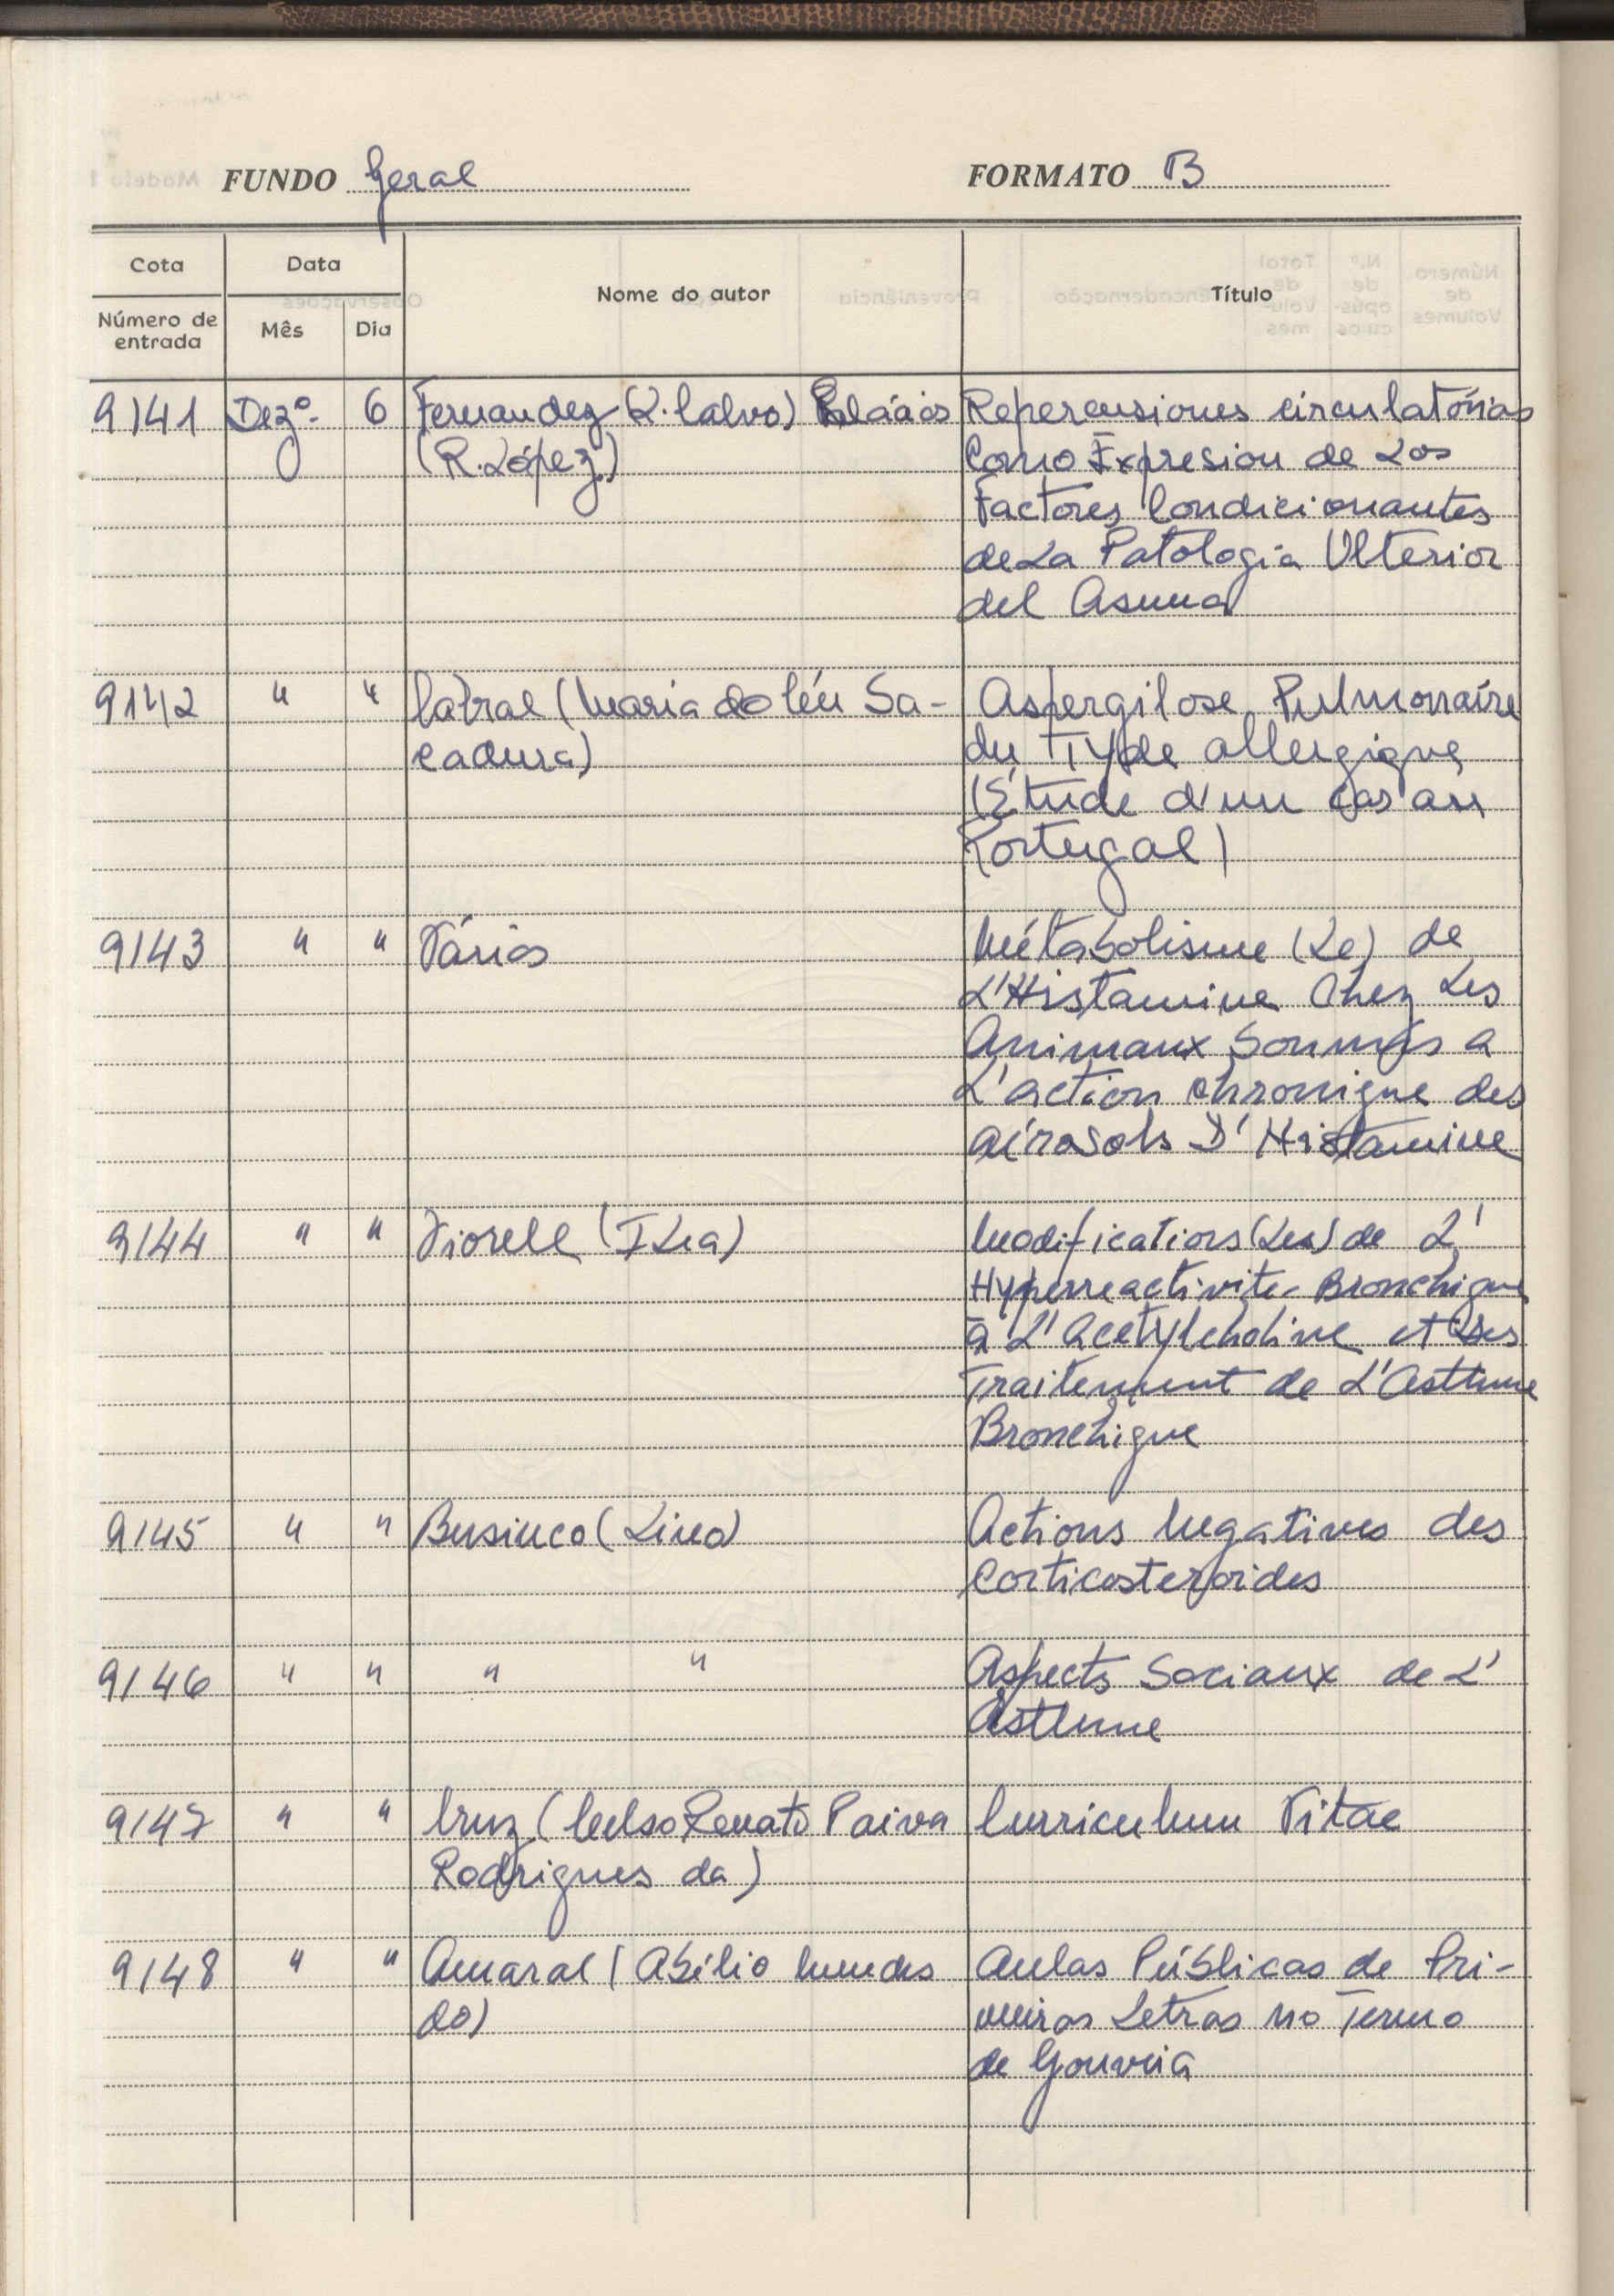 FUNDO Geral FORMATO B
Cota Data Nome do autor Título
Número de entrada Mês Dia
9141 Dezº. 6 Fernandez (L. Calvo) Repercusiones circulatórias
(R. López) Como Expresion de Los
Factores Condicionantes
de La Patologia Ulterior
del Asma
9142 " " Cabral (Maria do Céu Sa- Aspergilose Pulmonaire
cadura) du Type allergique
(Étude d'un cas au
Portugal)
9143 " " Vários Métabolisme (Le) de
L'Histamine Chez Les
Animaux Soumis a
L'action chronique des
aérosols D'Histamine
9144 " " Viorell Modifications (Les) de L'
Hyperreactivite Bronchique
a L'acetylcholine et
Traitement de L'Asthme
Bronchique
9145 " " Businco (Lino) Actions Negatives des
Corticosteroides
9146 " " " " Aspects Sociaux de L'
Asthme
9147 " " Cruz (Celso Renato Paiva Curriculum Vitae
Rodrigues da)
9148 " " Amaral (Abílio Mendes Aulas Públicas de Pri-
do) meiras Letras no Termo
de Gouveia